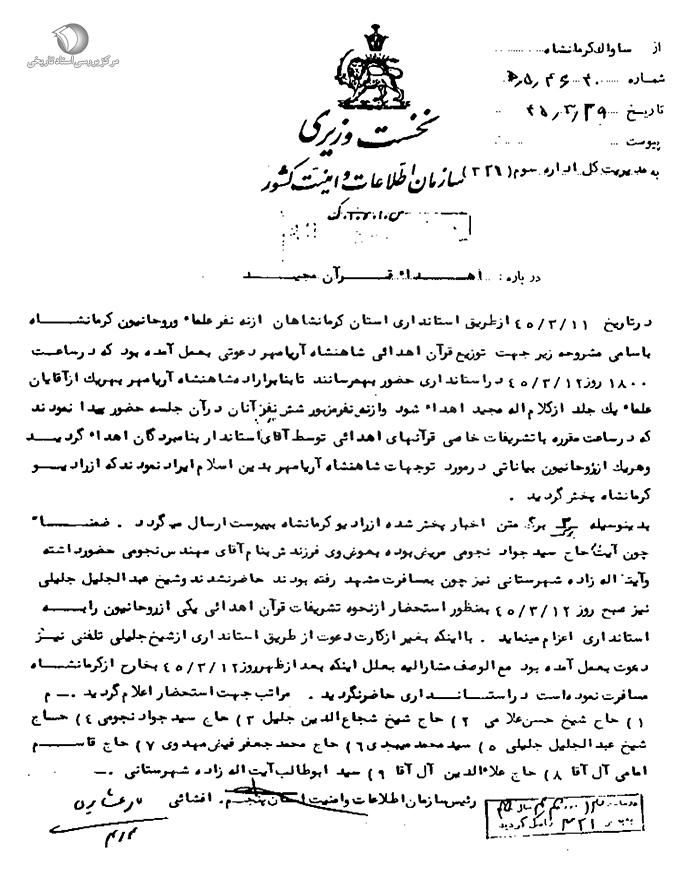 مرکز بررسی اسناد تاریخی
از ساواک کرمانشاه
شماره
تاریخ ۴۵/۳/۲۹
پیوست
نخست وزیری
سازمان اطلاعات و امنیت کشور
س.ا.و.ا.ک
به مدیریت کل اداره سوم (۳۲۱)
درباره: اهداء قرآن مجید
در تاریخ ۴۵/۳/۱۱ از طریق استانداری استان کرمانشاهان از نه نفر علماء و روحانیون کرمانشاه
باسامی مشروحه زیر جهت توزیع قرآن اهدائی شاهنشاه آریامهر دعوتی بعمل آمده بود که در ساعت
۱۸۰۰ روز ۴۵/۳/۱۲ در استانداری حضور بهمرسانند تا بنا براراده شاهنشاه آریامهر بهریک از آقایان
علماء یک جلد از کلام اله مجید اهداء شود و از نه نفر مزبور شش نفر آنان در آن جلسه حضور پیدا نمودند
که در ساعت مقرره با تشریفات خاصی قرآنهای اهدائی توسط آقای استاندار بنامبردگان اهداء گردید
و هریک از روحانیون بیاناتی در مورد توجهات شاهنشاه آریامهر بدین اسلام ایراد نمودند که از رادیو
کرمانشاه پخش گردید .
بدینوسیله برگ متن اخبار پخش شده از رادیو کرمانشاه بپیوست ارسال میگردد . ضمناً
چون آیت اله حاج سید جواد نجومی مریض بوده بعوض وی فرزندش بنام آقای مهندس نجومی حضور داشته
و آیت اله زاده شهرستانی نیز چون بمسافرت مشهد رفته بودند حاضر نشدند و شیخ عبدالجلیل جلیلی
نیز صبح روز ۴۵/۳/۱۲ بمنظور استحضار از نحوه تشریفات قرآن اهدائی یکی از روحانیون را به
استانداری اعزام مینماید . با اینکه بغیر از کارت دعوت از طریق استانداری از شیخ جلیلی تلفنی نیز
دعوت بعمل آمده بود مع الوصف مشارالیه بعلل اینکه بعد از ظهر روز ۴۵/۳/۱۲ بخارج از کرمانشاه
مسافرت نموده است در استانداری حاضر نگردید . مراتب جهت استحضار اعلام گردید . م
۱) حاج شیخ حسن علامی ۲) حاج شیخ شجاع الدین جلیل ۳) حاج سید جواد نجومی ۴) حاج
شیخ عبدالجلیل جلیلی ۵) سید محمد میبدی ۶) حاج محمد جعفر فیض مهدوی ۷) حاج قاسم
امامی آل آقا ۸) حاج علاءالدین آل آقا ۹) سید ابوطالب آیت اله زاده شهرستانی .
رئیس سازمان اطلاعات و امنیت استان پنجم . افشائی